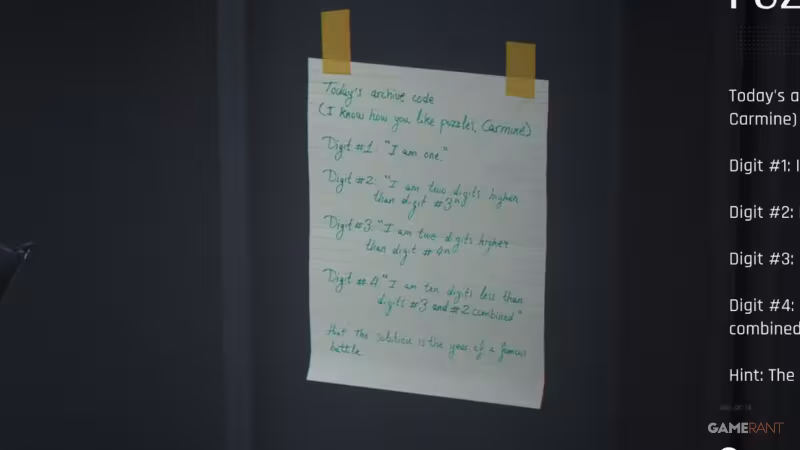 Today's archive code
(I know how you like puzzles, Carmine)
Digit #1: "I am one."
Digit #2: "I am two digits higher
than digit #3"
Digit #3: "I am two digits higher
than digit #4"
Digit #4 "I am ten digits less than
digits #3 and #2 combined"
Hint: The solution is the year of a famous
battle
Today's a
Carmine)
Digit #1: I
Digit #2:
Digit #3:
Digit #4:
combined
Hint: The
GAMERANT